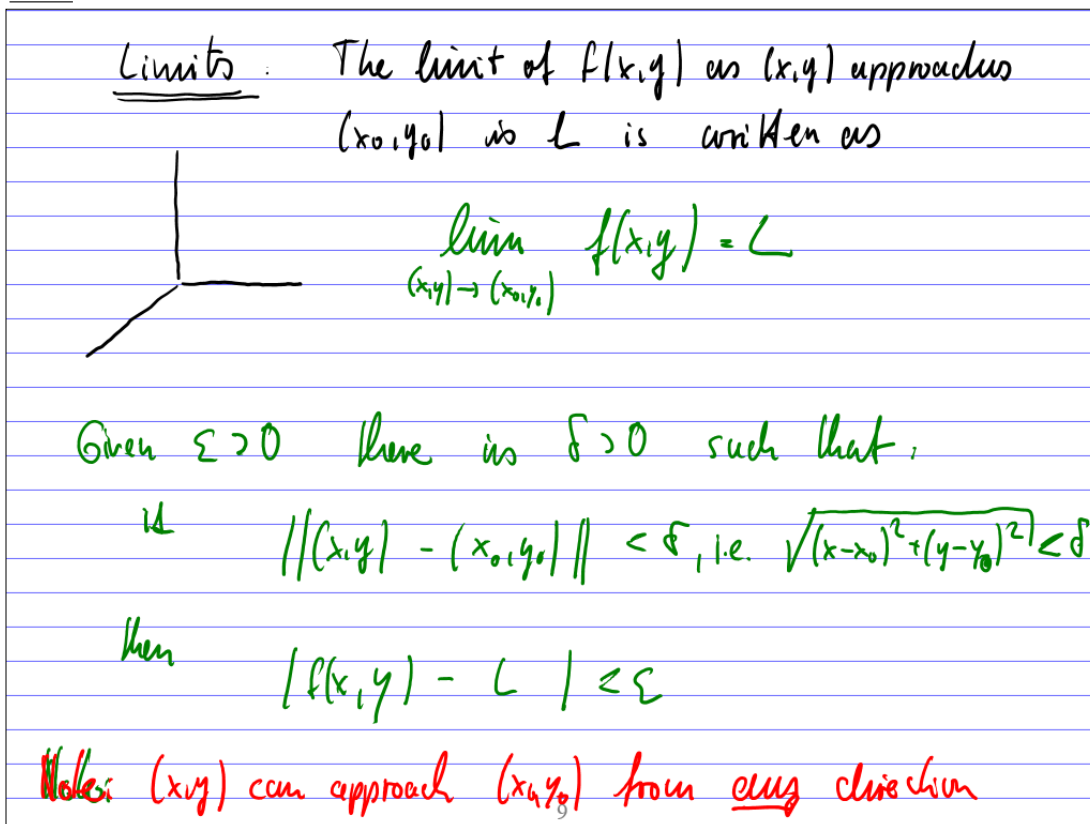 Limits: The limit of f(x,y) as (x,y) approaches
(x₀,y₀) is L is written as
lim f(x,y) = L
(x,y) → (x₀,y₀)
Given ε > 0 there is δ > 0 such that:
if ||(x,y) - (x₀,y₀)|| < δ, i.e. √((x-x₀)²+(y-y₀)²) < δ
then |f(x,y) - L| < ε
Note: (x,y) can approach (x₀,y₀) from any direction
9